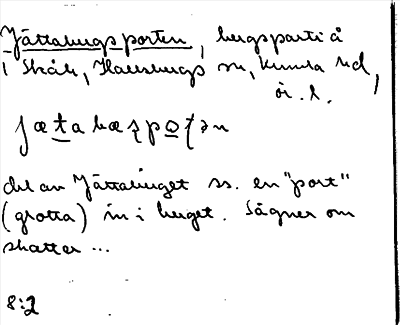 Jättabergsporten, bergsparti å
i Skåle, Hallsbergs sn, Kumla hd,
ör. l.
jætabæʂpoʈən
del av Jättaberget ss. en "port"
(grotta) in i berget. Sägner om
skatter ...
8:2